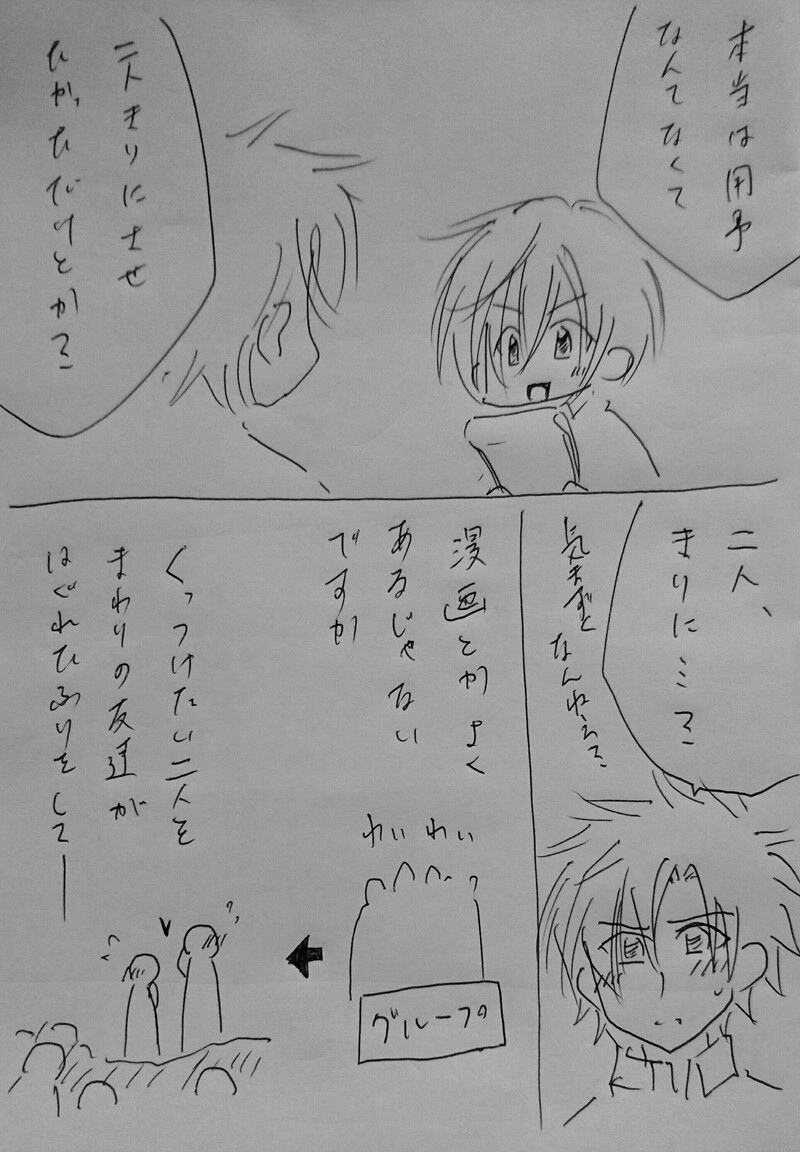 本当は用事
なんてなくて
二人きりにさせ
たかっただけとか？
二人、
きりに…？
気まずく
なんねぇ？
漫画とかよく
あるじゃない
ですか
わいわい
グループ
くっつけたい二人を
まわりの友達が
はぐれたふりをして―